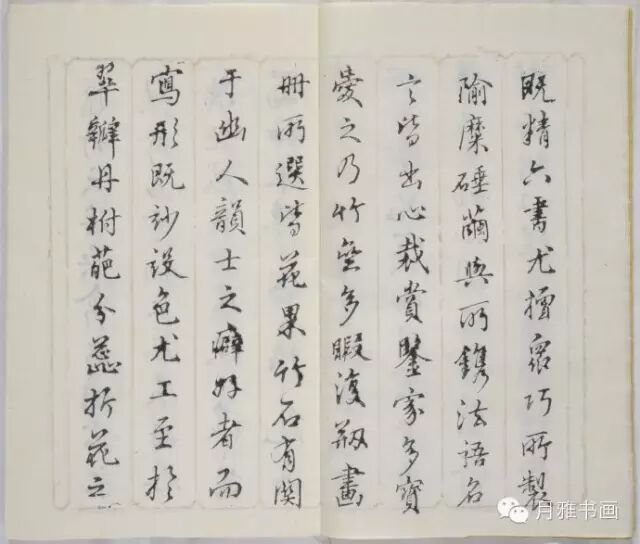 既精六書尤擅眾巧所製
隃糜硾蠒與所鐫法語名
言皆出心裁賞鑒家多寶
愛之乃竹堅多暇復刱畫
冊所選皆花果竹石有関
于幽人韻士之癖好者而
寫形既妙設色尤工至於
翠瓣丹柎葩分蕊折花之
月雅书画